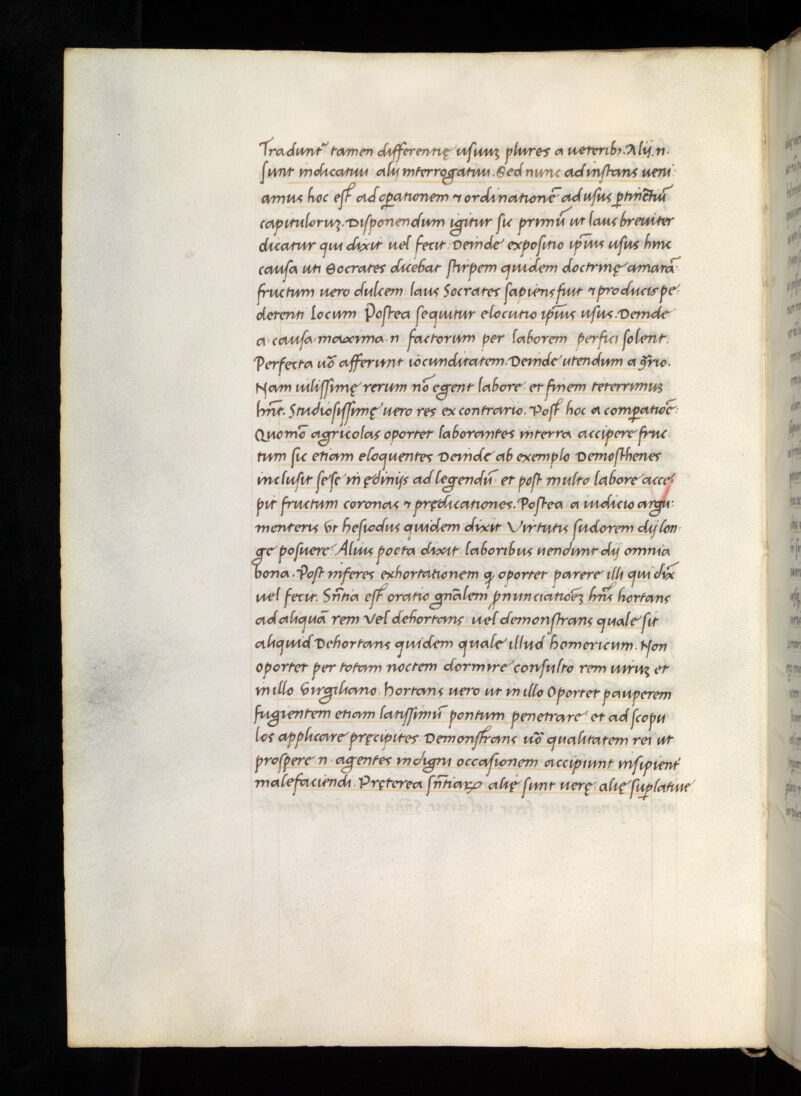 Tradunt͂ tamen differentię usuuꝫ plures a ueterib₃. Alij .n.
sunt indicatiui alij interrogatiui. Sed nunc ad instans ueni
amus hoc est ad oꝑationem ⁊ ordinationē ad usus ꝑtinētiū
capituloruꝫ. Disponendum igitur sic primū ut laus breuiter
dicatur qui dixit uel fecit. Deinde expositio ip̄ius usus hinc
causa uti Socrates dicebat stirpem quidem doctrinę amarā
fructum uero dulcem laus Socrates sapiens fuit ⁊ producis pe
deterti locum Postea sequitur elocutio ip̄ius usus. Deinde
a causa maxima .n. factorum per laborem perfici solent.
Perfecta uō afferunt iocunditatem. Deinde utendum a 9̄rio.
Nam uilissimę rerum nō egent labore et finem teterrimuꝫ
hn̄t. Studiosissimę uero res ex contrario. Post hoc a comꝑatiōe
Quomō agricolas oportet laborantes in terra accipere fruc
tum sic etiam eloquentes Deinde ab exemplo Demosthenes
inclusit sese in ędinijs ad legendū et post multo labore acce
pit fructum coronas ⁊ prędicationes. Postea a iudicio argu
menteris Vt hesiodus quidem dixit Virtutis sudorem dij lon
ge posuere Alius poeta dixit laboribus uendunt dij omnia
bona. Post inferes exhortationem ꝙ oportet parere illi qui dix̄
uel fecit. Sn̄tia est oratio gn̄alem pnunciatiōeꝫ hn̄s hortans
ad aliquā rem vel dehortans uel demonstrans quale sit
aliquid Dehortans quidem quale illud homericum. Non
oportet per totam noctem dormire consulto rem uiruꝫ et
in illo Virgiliano hortans uero ut in illo Oportet pauperem
fugientem etiam latissimū pontum penetrare et ad scopu
los applicare pręcipites Demonstrans uō qualitatem rei ut
prospere .n. agentes indigni occasionem accipiunt insipient͂
malefaciendi. Pręterea sn̄tiaꝝ alię sunt uerę alię suꝑlatiue